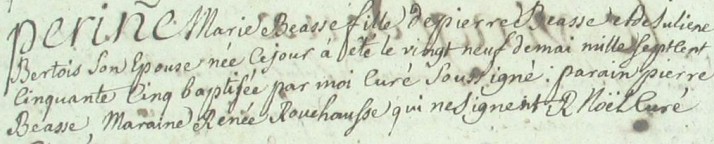 perine Marie Beasse fille de pierre Beasse et de Juliene
Bertois son Epouse née ce jour à été le vingt neuf de mai mille sept cent
cinquante cinq baptisée par moi Curé soussigné : parain pierre
Beasse, Maraine Renée Rouehausse qui ne signent R Noël Curé